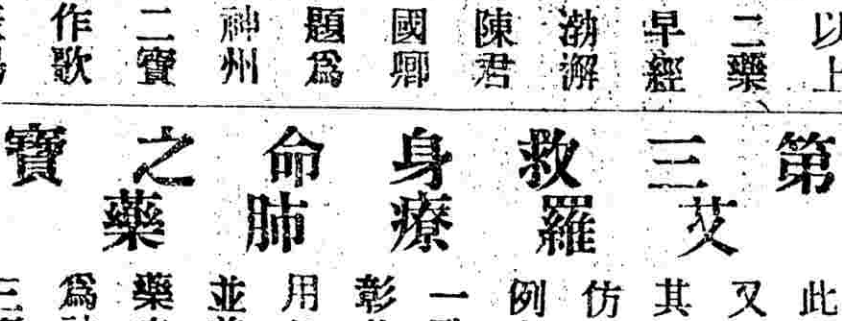 以上
二藥
早經
渤澥
陳君
國卿
題爲
神州
二寶
作歌
第三救身命之寶
艾羅療肺藥
此
又
其
仿
例
一
彰
用
並
藥
爲
三